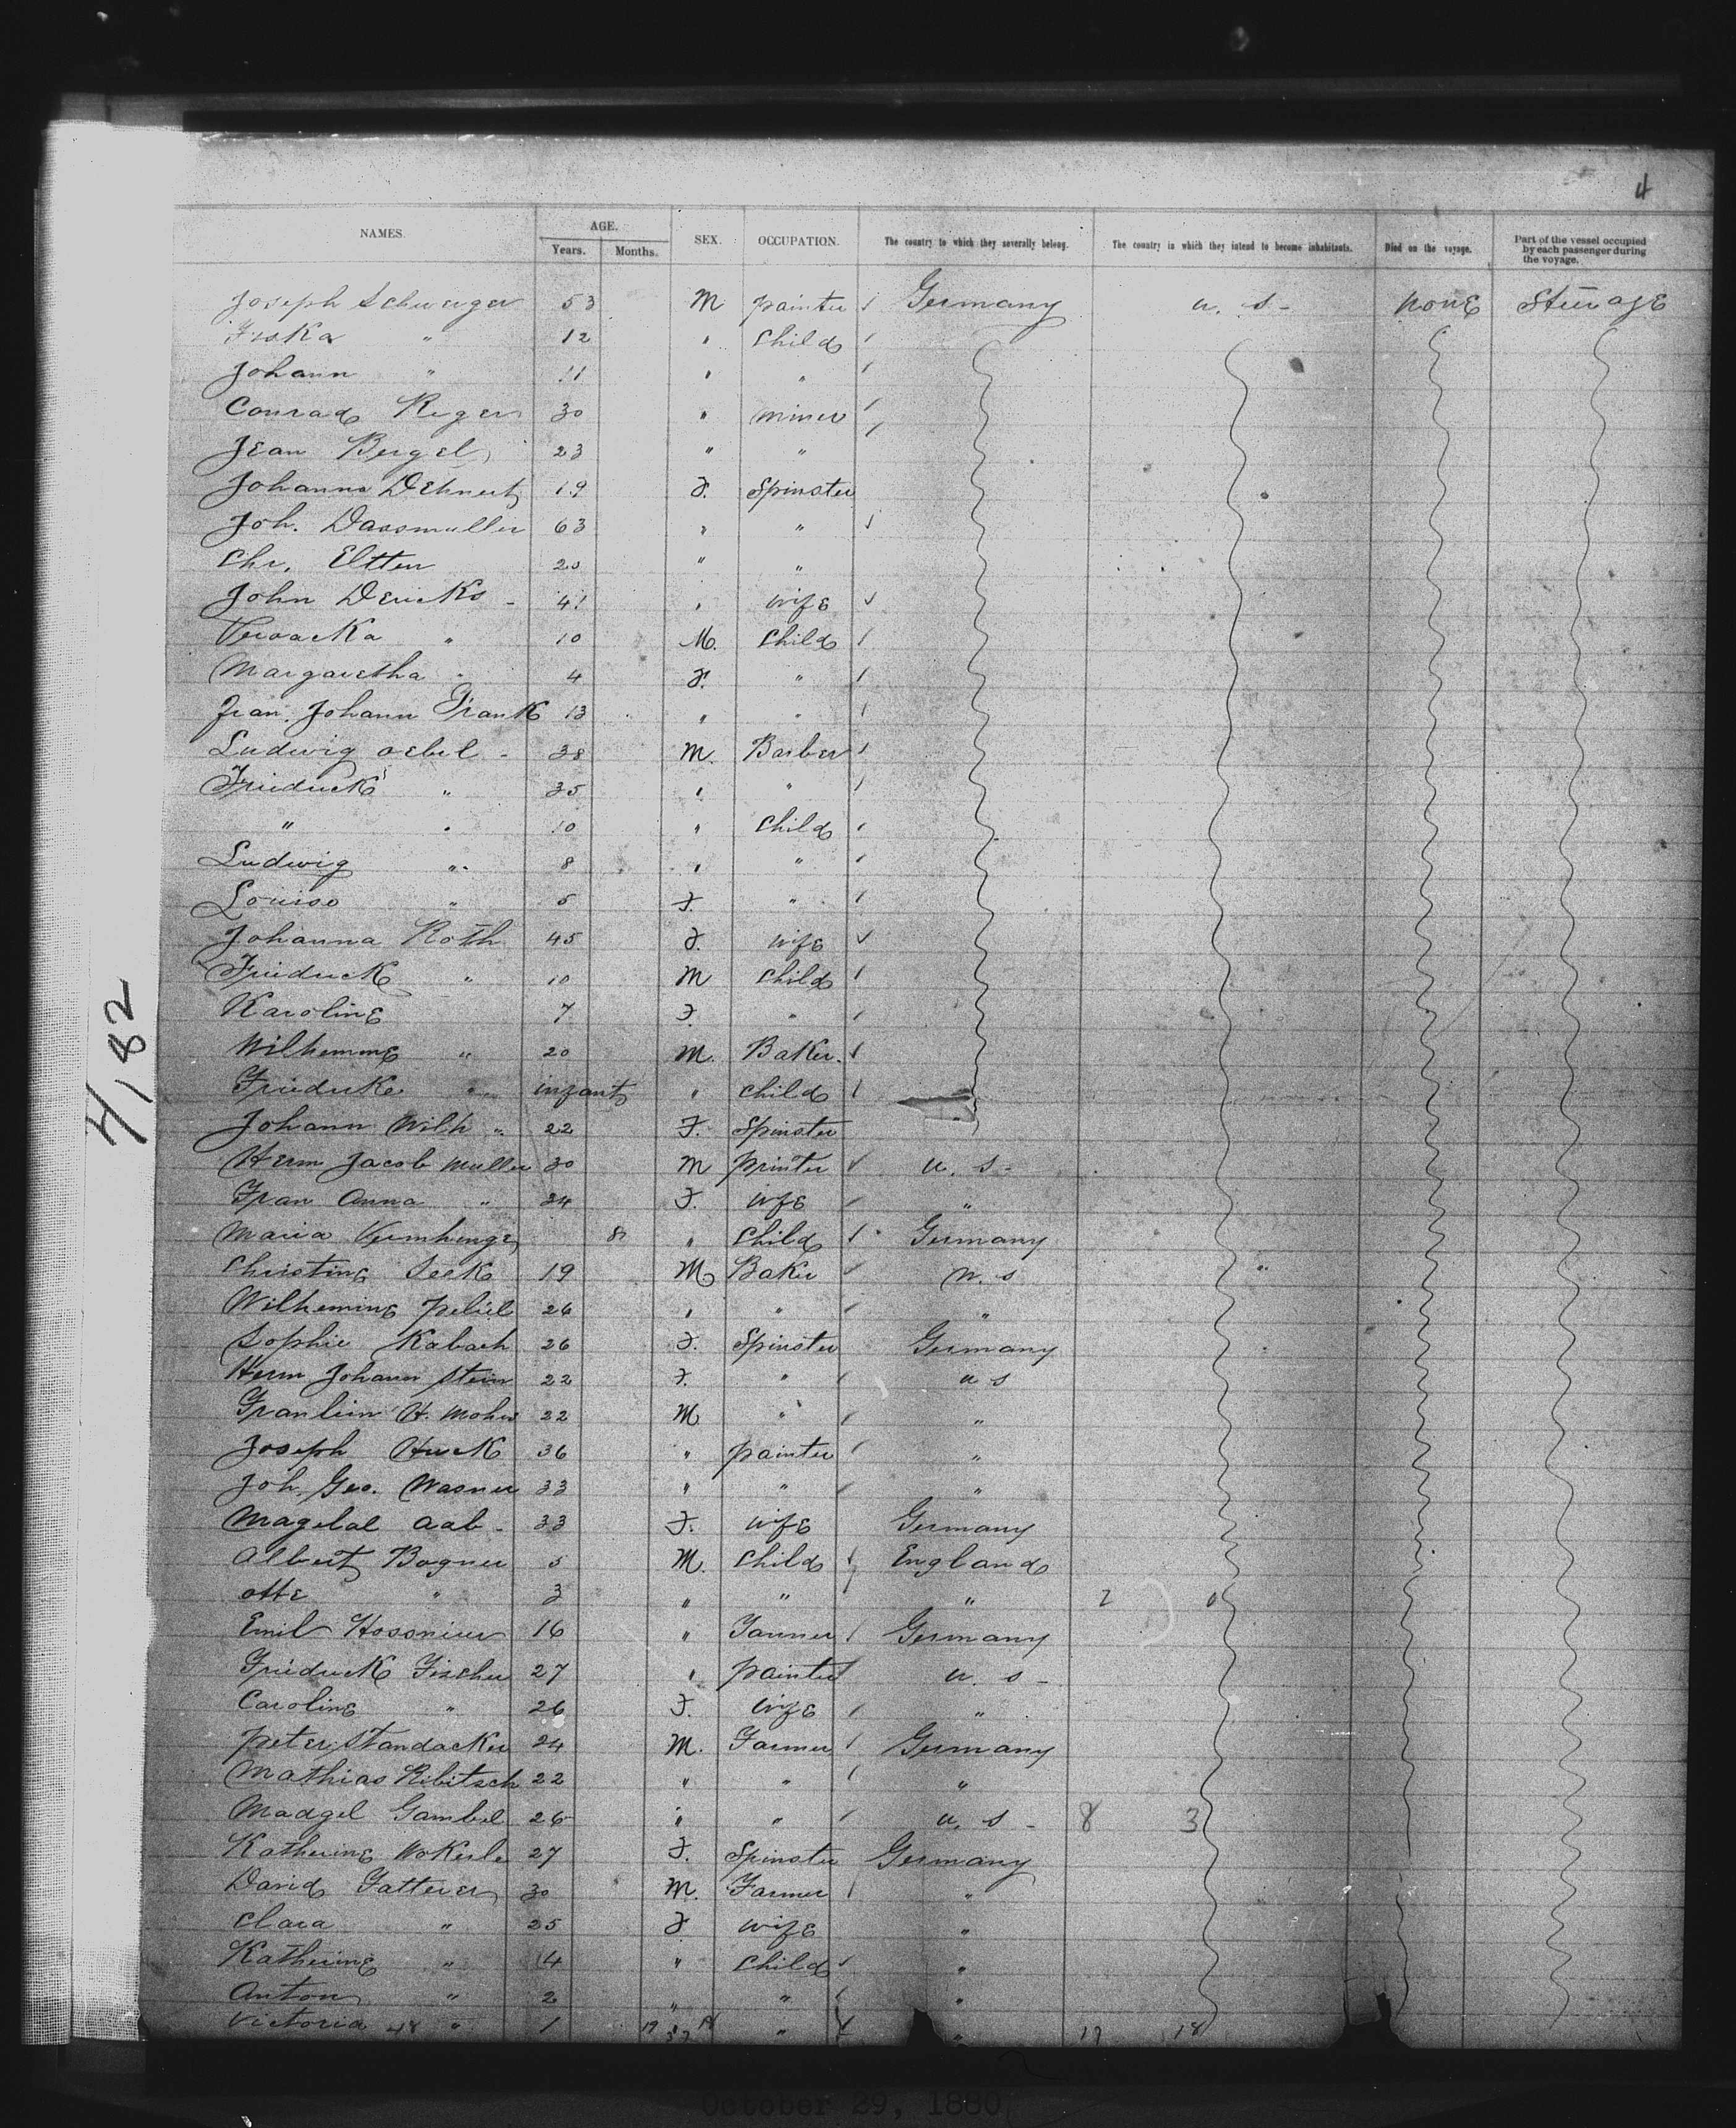 4
NAMES. AGE. SEX. OCCUPATION. The country to which they severally belong. The country in which they intend to become inhabitants. Died on the voyage. Part of the vessel occupied by each passenger during the voyage.
Years. Months.
Joseph Schweiger 53 M painter Germany U. S - none Steerage
Fiska " 12 " Child
Johann " 11 " "
Conrad Reger 30 " miner
Jean Bergel 23 " "
Johanna Dehnert 19 F. Spinster
Joh. Dassmuller 63 " "
Chr. Eltten 20 " "
John Deucks - 41 " wife
" 10 M. Child
Margaretha " 4 F. "
Frau. Johann Frank 13 " "
Ludwig Oebel - 38 M. Barber
Friedrick " 35 " "
" " 10 " Child
Ludwig " 8 " "
Louise " 5 F. "
Johanna Roth 45 F. wife
Friedrick " 10 M Child
Karoline 7 F. "
Wilhemine " 20 M. Baker
Friedrike " infant " child
Johann Wilh " 22 F. Spinster
Herm Jacob Muller 30 M printer U. S -
Frau Anna " 24 F. wife "
Maria 8 " Child Germany
Christine Seek 19 M Baker U. S
Wilhemine 26 " " "
Sophie Kabach 26 F. Spinster Germany
Herm Johann Stein 22 F. " U S
H. Mohr 22 M " "
Joseph Huck 36 " painter "
Joh. Geo. Wasner 33 " " "
Magelal Aab - 33 F. wife Germany
Albert Bogner 5 M. Child England
Otte " 3 " " " 2 0
Emil Hossnier 16 " Farmer Germany
Friedrick Fischer 27 " painter U. S -
Caroline " 26 F. wife "
Peter Standacker 24 M. Farmer Germany
Mathias Ribitsch 22 " " "
Madgel Gambel 26 " " U. S - 8 3
Katherine Wokerle 27 F. Spinster Germany
David Fatterer 30 M. Farmer "
Clara " 25 F wife "
Katherine " 4 " Child "
Anton " 2 " " "
Victoria 48 " 1 " " 17 18
H, 82
October 29, 1880